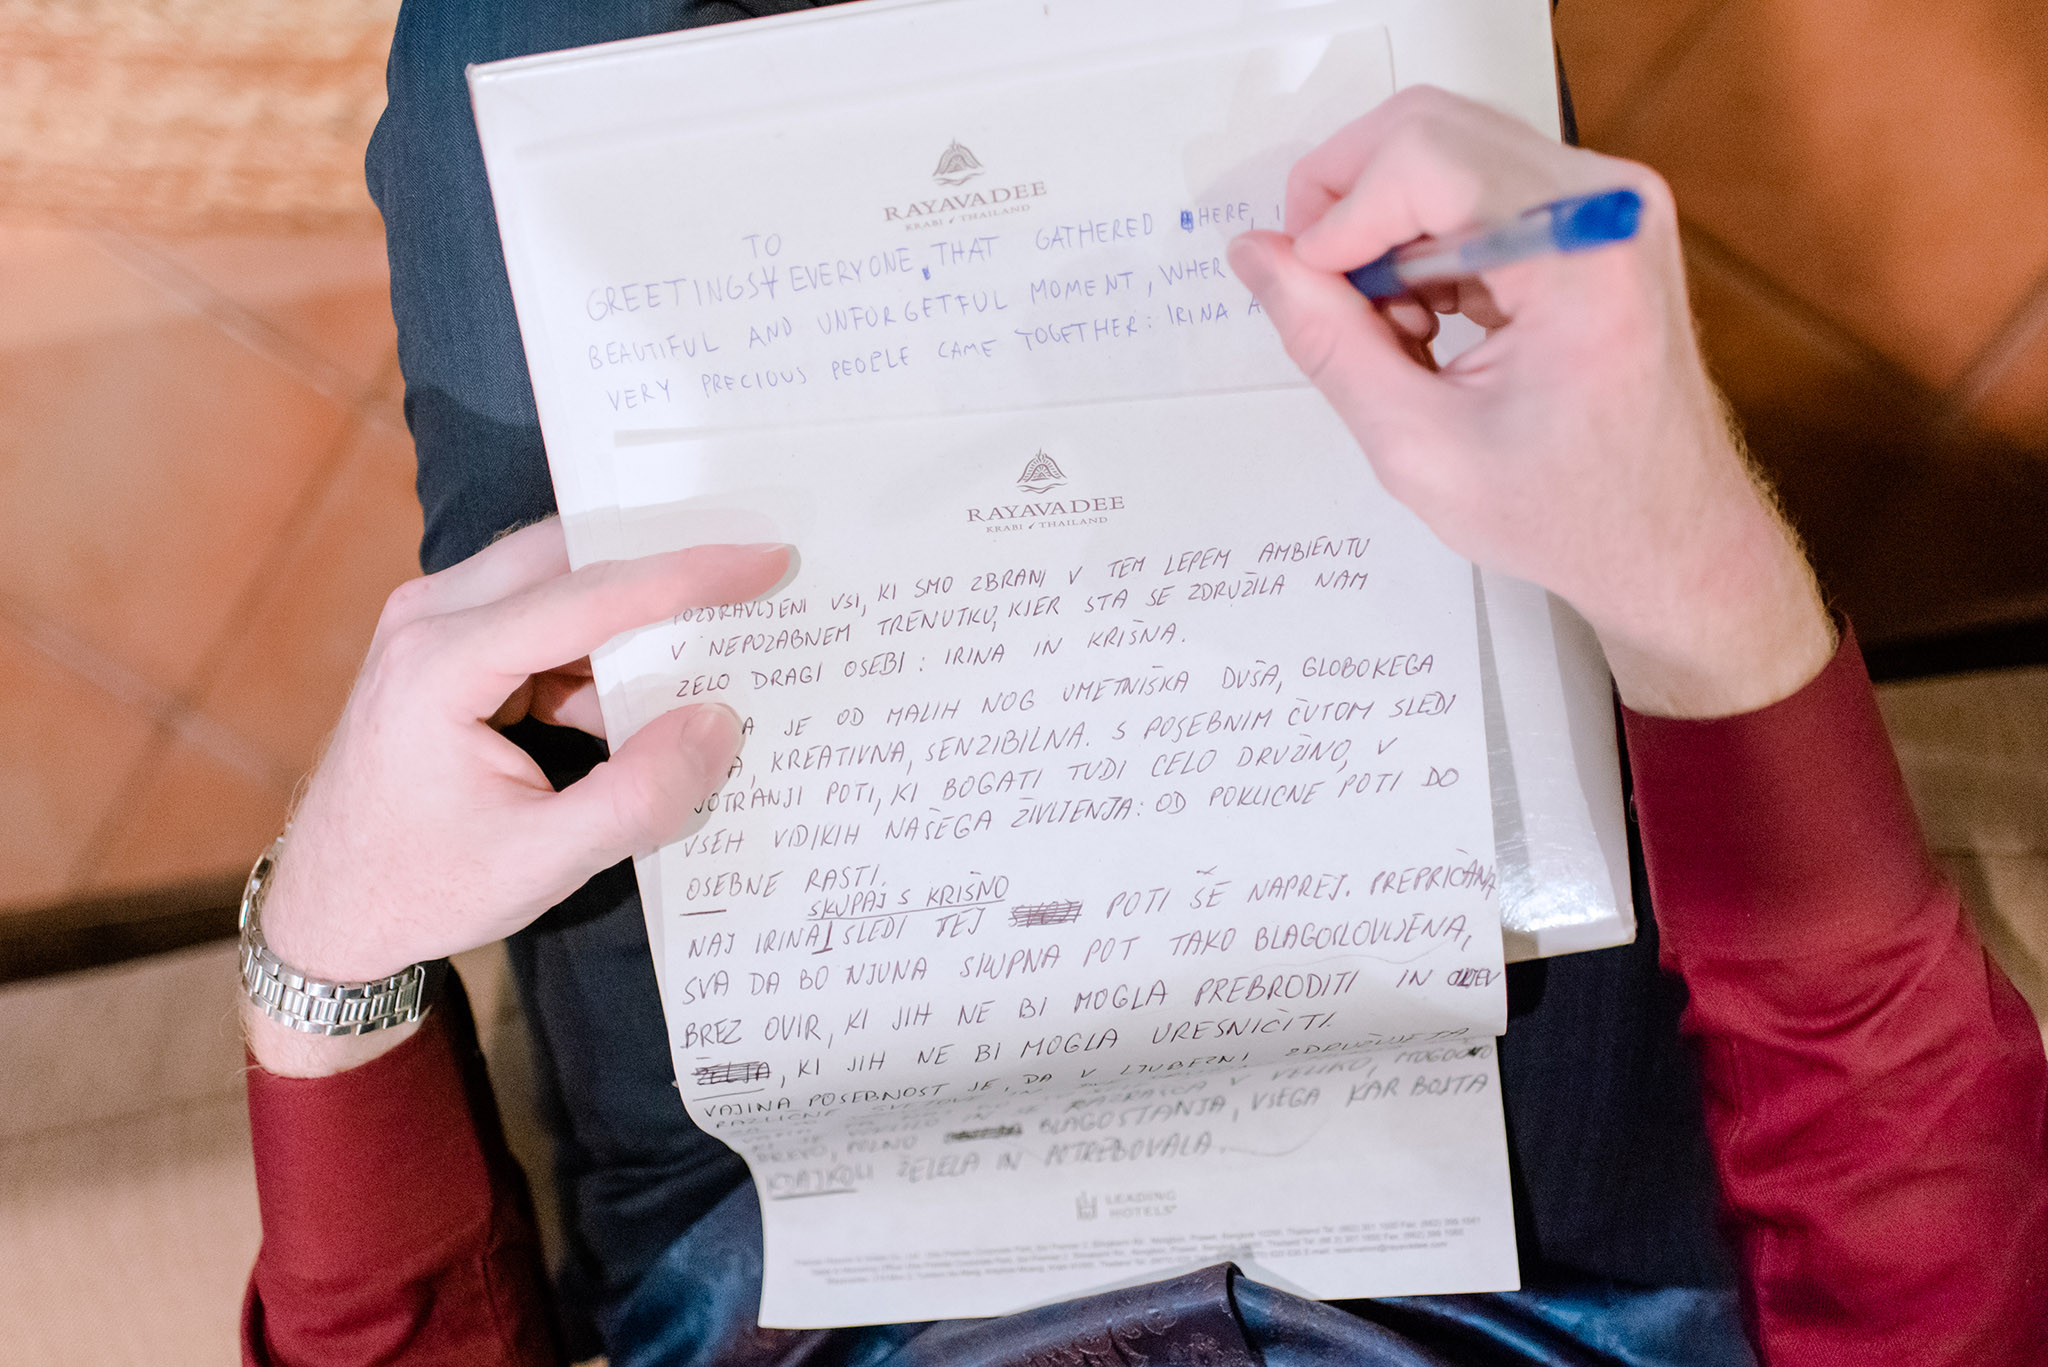 RAYAVADEE
KRABI THAILAND
TO
GREETINGS EVERYONE, THAT GATHERED HERE, I
BEAUTIFUL AND UNFORGETFUL MOMENT, WHER
VERY PRECIOUS PEOPLE CAME TOGETHER: IRINA A
RAYAVADEE
KRABI THAILAND
POZDRAVLJENI VSI, KI SMO ZBRANI V TEM LEPEM AMBIENTU
V NEPOZABNEM TRENUTKU, KJER STA SE ZDRUŽILA NAM
ZELO DRAGI OSEBI: IRINA IN KRIŠNA.
A JE OD MALIH NOG UMETNIŠKA DUŠA, GLOBOKEGA
A, KREATIVNA, SENZIBILNA. S POSEBNIM ČUTOM SLEDI
NOTRANJI POTI, KI BOGATI TUDI CELO DRUŽINO, V
VSEH VIDIKIH NAŠEGA ŽIVLJENJA: OD POKLICNE POTI DO
OSEBNE RASTI.
SKUPAJ S KRIŠNO
NAJ IRINA SLEDI TEJ POTI ŠE NAPREJ. PREPRIČANA
SVA DA BO NJUNA SKUPNA POT TAKO BLAGOSLOVLJENA,
BREZ OVIR, KI JIH NE BI MOGLA PREBRODITI IN
ŽELJA, KI JIH NE BI MOGLA URESNIČITI.
VAJINA POSEBNOST JE, DA V LJUBEZNI ZDRUŽUJETA
RAZLIČNE
RAZRAŠČA V VELIKO, MOGOČNO
DREVO, POLNO BLAGOSTANJA, VSEGA KAR BOSTA
KDAJKOLI ŽELELA IN POTREBOVALA.
LEADING
HOTELS